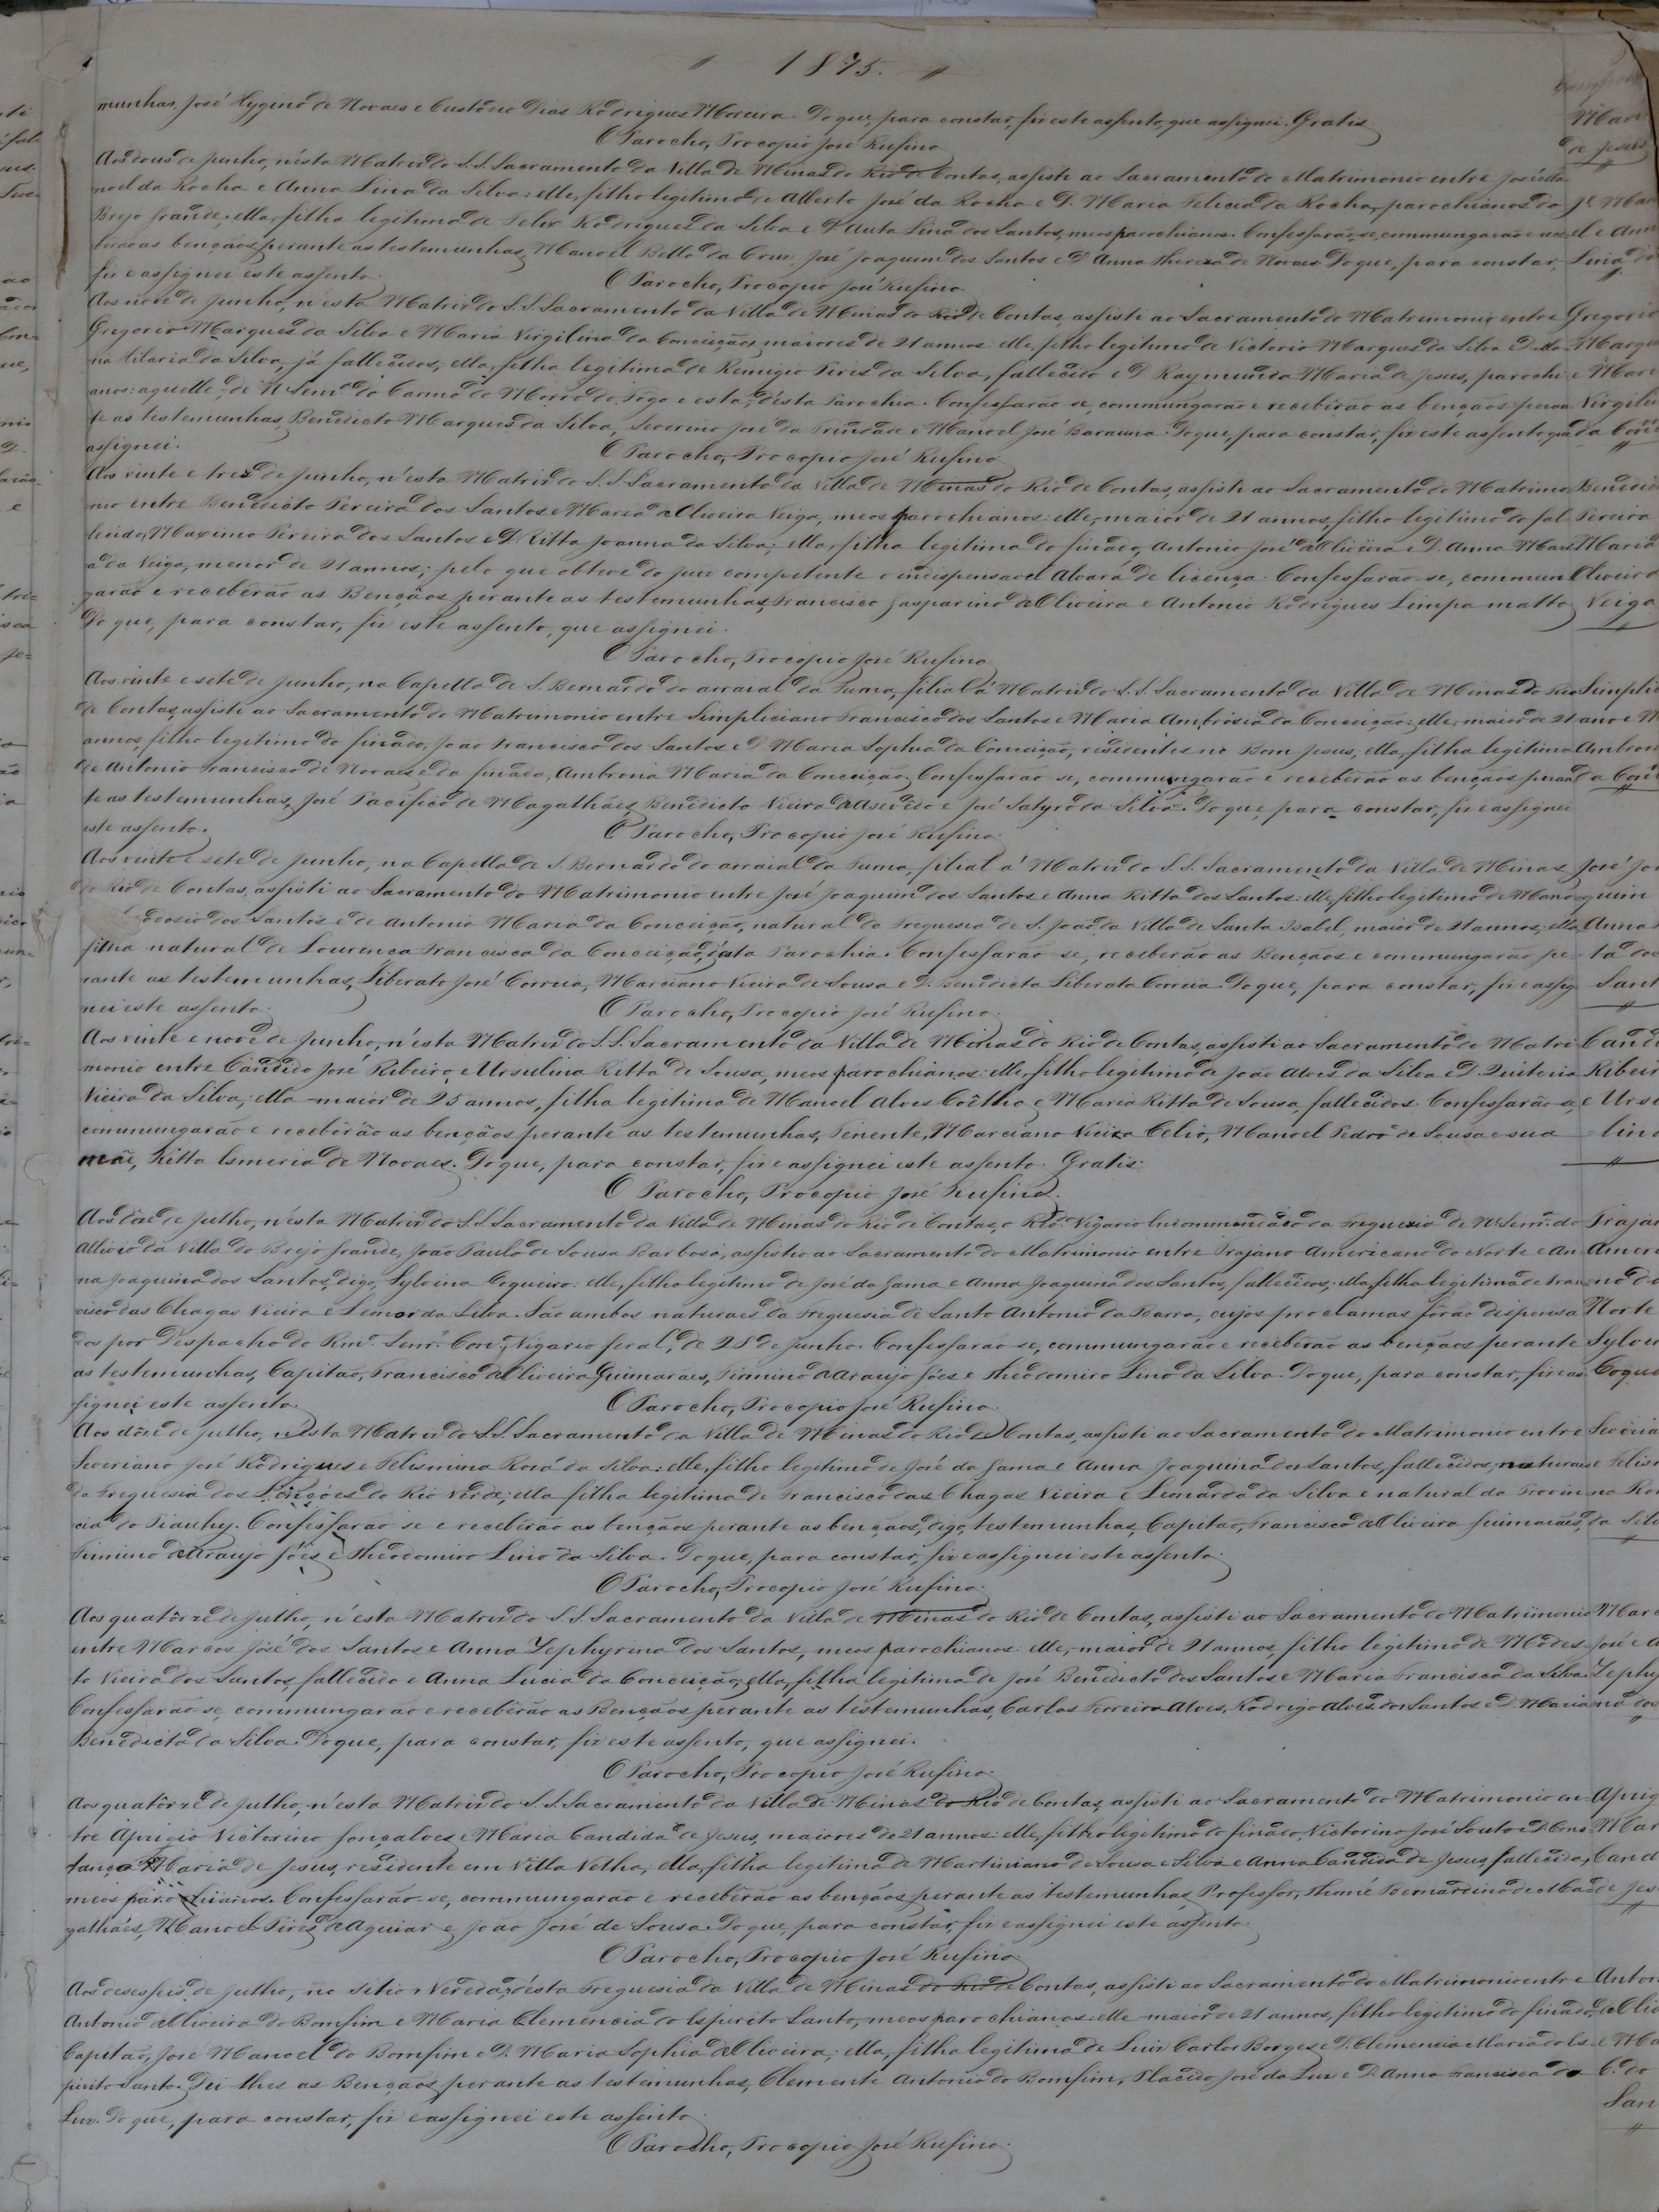 " 1875. "
munhas, José Hygino de Novaes e Custodio Dias Rodrigues Moreira. Do que, para constar, fiz este assento, que assignei. Gratis.
O Parocho, Procopio José Rufino
Aos dous de Junho, n'esta Matriz do S.S. Sacramento da Villa de Minas do Rio de Contas, assisti ao Sacramento do Matrimonio entre José Ma-
noel da Rocha e Anna Lina da Silva: elle, filho legitimo de Alberto José da Rocha e D. Maria Felicia da Rocha, parochianos do
Brejo Grande; ella, filha legitima de Felix Rodrigues da Silva e D. Auta Lina dos Santos, meos parochianos. Confessarão-se, commungarão e rece-
berão as bençãos perante as testemunhas, Manoel Bello da Cruz, José Joaquim dos Santos e D. Anna Thereza de Novaes. Do que, para constar,
fiz e assignei este assento.
O Parocho, Procopio José Rufino.
Aos nove de Junho, n'esta Matriz do S.S. Sacramento da Villa de Minas do Rio de Contas, assisti ao Sacramento do Matrimonio entre
Gregorio Marques da Silva e Maria Virgilina da Conceição, maiores de 21 annos: elle, filho legitimo de Victorio Marques da Silva e D. Ma-
ria Hilaria da Silva, já fallecidos; ella, filha legitima de Remigio Pires da Silva, fallecido e D. Raymunda Maria de Jesus, parochi-
anos: aquelle, de N. Senr.ª do Carmo do Morro do Fogo e esta, d'esta Parochia. Confessarão-se, commungarão e receberão as bençãos peran-
te as testemunhas, Benedicto Marques da Silva, Severino José da Trindade e Manoel José Barauna. Do que, para constar, fiz este assento que
assignei.
O Parocho, Procopio José Rufino
Aos vinte e tres de Junho, n'esta Matriz do S.S. Sacramento da Villa de Minas do Rio de Contas, assisti ao Sacramento do Matrimo-
nio entre Benedicto Pereira dos Santos e Maria d'Oliveira Veiga, meos parochianos: elle, maior de 21 annos, filho legitimo do fal-
lecido, Maximo Pereira dos Santos e D. Ritta Joanna da Silva; ella, filha legitima do finado, Antonio José d'Oliveira e D. Anna Mari-
a da Veiga, menor de 21 annos; pelo que obteve do juiz competente o indispensavel Alvará de licença. Confessarão-se, commun-
garão e receberão as Bençãos perante as testemunhas, Francisco Gasparino d'Oliveira e Antonio Rodrigues Limpa matto.
Do que, para constar, fiz este assento, que assignei.
O Parocho, Procopio José Rufino
Aos vinte e sete de Junho, na Capella de S. Bernardo do arraial da Furna, filial á Matriz do S.S. Sacramento da Villa de Minas do Rio
de Contas, assisti ao Sacramento do Matrimonio entre Simpliciano Francisco dos Santos e Maria Ambrosia da Conceição: elle, maior de 21
annos, filho legitimo do finado, João Francisco dos Santos e D. Maria Sophia da Conceição, residentes no Bom Jesus; ella, filha legitima
de Antonio Francisco de Novaes e da finada, Ambrosia Maria da Conceição. Confessarão-se, commungarão e receberão as bençãos peran-
te as testemunhas, José Pacifico de Magalhães, Benedicto Vieira d'Asevedo e José Satyro da Silva. Do que, para constar, fiz e assignei
este assento.
O Parocho, Procopio José Rufino.
Aos vinte e sete de Junho, na Capella de S. Bernardo do arraial da Furna, filial á Matriz do S.S. Sacramento da Villa de Minas
do Rio de Contas, assisti ao Sacramento do Matrimonio entre José Joaquim dos Santos e Anna Ritta dos Santos: elle, filho legitimo de Mano-
dos Santos e de Antonia Maria da Conceição, natural da Freguesia de S. João da Villa de Santa Isabel, maior de 21 annos; ella
filha natural de Lourença Francisca da Conceição, d'esta Parochia. Confessarão-se, receberão as Bençãos e commungarão pe-
rante as testemunhas, Liberato José Correia, Marciano Vieira de Sousa e D. Benedicta Liberata Correia. Do que, para constar, fiz e assig-
nei este assento.
O Parocho, Procopio José Rufino.
Aos vinte e nove de Junho, n'esta Matriz do S.S. Sacramento da Villa de Minas do Rio de Contas, assisti ao Sacramento do Matri-
monio entre Candido José Ribeiro e Ursulina Ritta de Sousa, meos parochianos: elle, filho legitimo de João Alves da Silva e D. Quiteria
Vieira da Silva; ella maior de 25 annos, filha legitima de Manoel Alves Coêlho e Maria Ritta de Sousa, fallecidos. Confessarão-se,
commungarão e receberão as bençãos perante as testemunhas, Tenente, Marciano Vieira Celio, Manoel Pedro de Sousa e sua
mãe, Ritta Ismeria de Novaes. Do que, para constar, fiz e assignei este assento. Gratis.
O Parocho, Procopio José Rufino.
Aos dôze de Julho, n'esta Matriz do S.S. Sacramento da Villa de Minas do Rio de Contas, o Rd.º Vigario Incommendado da Freguesia de N. Senr.ª do
Allivio da Villa do Brejo Grande, João Paulo de Sousa Barbosa, assistio ao Sacramento do Matrimonio entre Trajano Americano do Norte e An-
na Joaquina dos Santos, digo, Sylvina Coqueiro: elle, filho legitimo de José da Gama e Anna Joaquina dos Santos, fallecidos; ella, filha legitima de Fran-
cisco das Chagas Vieira e Leonor da Silva. São ambos naturaes da Freguesia de Santo Antonio da Barra, cujos proclamas fôrão dispensa-
dos por Despacho do Rm.º Senr. Con.º Vigario Geral, de 28 de Junho. Confessarão-se, commungarão e receberão as bençãos perante
as testemunhas, Capitão, Francisco d'Oliveira Guimaraes, Firmino d'Araujo Góes e Theodomiro Lino da Silva. Do que, para constar, fiz e as-
signei este assento.
O Parocho, Procopio José Rufino.
Aos dôze de Julho, n'esta Matriz do S.S. Sacramento da Villa de Minas do Rio de Contas, assisti ao Sacramento do Matrimonio entre
Severiano José Rodrigues e Felismina Rosa da Silva: elle, filho legitimo de José da Gama e Anna Joaquina dos Santos, fallecidos, naturaes
da Freguesia dos Lençóes do Rio Verde; ella filha legitima de Francisco das Chagas Vieira e Leonarda da Silva e natural da Provin-
cia do Piauhy. Confessarão-se e receberão as bençãos perante as bençaos, digo, testemunhas, Capitão, Francisco d'Oliveira Guimarães,
Firmino d'Araujo Góes e Theodomiro Lino da Silva. Do que, para constar, fiz e assignei este assento.
O Parocho, Procopio José Rufino.
Aos quatôrze de Julho, n'esta Matriz do S.S. Sacramento da Villa de Minas do Rio de Contas, assisti ao Sacramento do Matrimonio
entre Marcos José dos Santos e Anna Zephyrina dos Santos, meos parochianos: elle, maior de 21 annos, filho legitimo de Modes-
to Vieira dos Santos, fallecido e Anna Lucia da Conceição; ella, filha legitima de José Benedicto dos Santos e Maria Francisca da Silva.
Confessarão-se, commungarão e receberão as Bençãos perante as testemunhas, Carlos Ferreira Alves, Rodrigo Alves dos Santos e D. Maria
Benedicta da Silva. Do que, para constar, fiz este assento, que assignei.
O Parocho, Procopio José Rufino.
Aos quatôrze de Julho, n'esta Matriz do S.S. Sacramento da Villa de Minas do Rio de Contas, assisti ao Sacramento do Matrimonio en-
tre Aprigio Victorino Gonçalves e Maria Candida de Jesus, maiores de 21 annos: elle, filho legitimo do finado, Victorino José Souto e D. Cons-
tança Maria de Jesus, residente em Villa Velha; ella, filha legitima de Martiniano de Sousa e Silva e Anna Candida de Jesus, fallecida,
meos parochianos. Confessarão-se, commungarão e receberão as bençãos perante as testemunhas, Professor, Thomé Bernardino de Ma-
galhaes, Manoel Pires d'Aguiar e João José de Sousa. Do que, para constar, fiz e assignei este assento.
O Parocho, Procopio José Rufino.
Aos desesseis de Julho, no sitio Vereda, d'esta Freguesia da Villa de Minas do Rio de Contas, assisti ao Sacramento do Matrimonio entre
Antonio d'Oliveira do Bomfim e Maria Clemencia do Espirito Santo, meos parochianos: elle maior de 21 annos, filho legitimo do finado,
Capitão, José Manoel do Bomfim e D. Maria Sophia d'Oliveira; ella, filha legitima de Luiz Carlos Borges e D. Clemencia Maria do Es-
pirito Santo. Dei-lhes as Bençãos perante as testemunhas, Clemente Antonio do Bomfim, Placido José da Luz e D. Anna Francisca da
Luz. Do que, para constar, fiz e assignei este assento.
O Parocho, Procopio José Rufino.